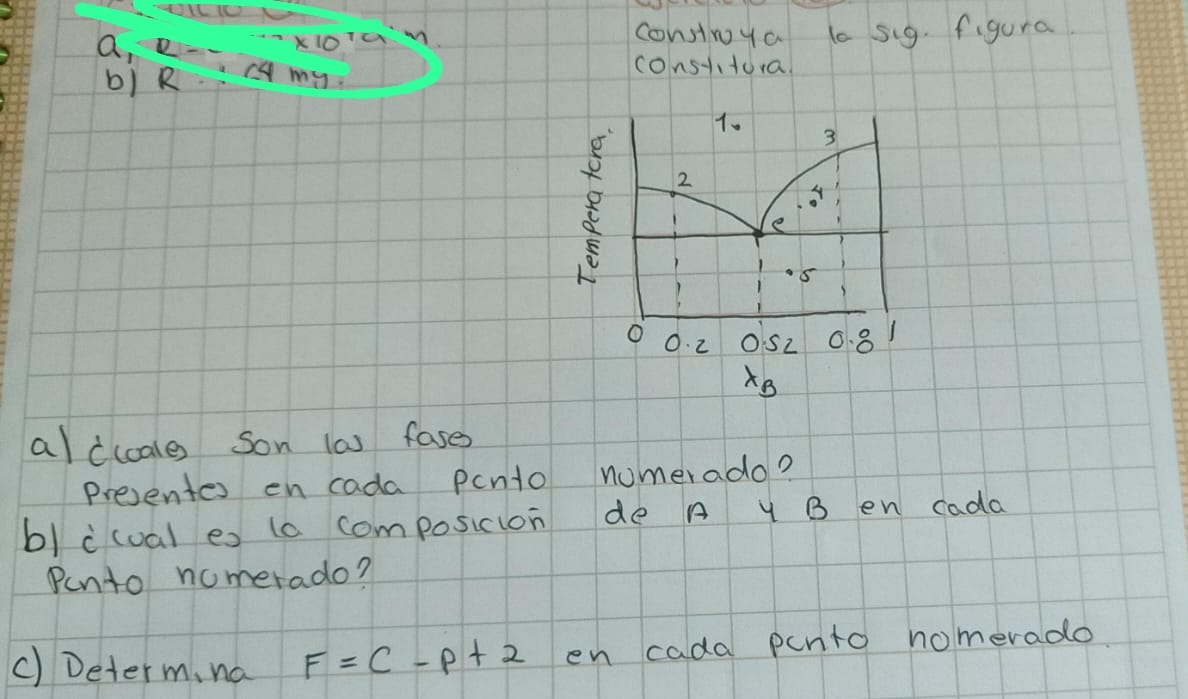 a) R
x10
b) R
Construya la sig. figura
constitura.
Temperatura.
1.
2
3
4
e
5
0 0.2 0.52 0.8 1
XB
a) ¿cuales son las fases
Presentes en cada punto numerado?
b) ¿cual es la composición de A y B en cada
Punto numerado?
c) Determina F = C - P + 2 en cada punto numerado.